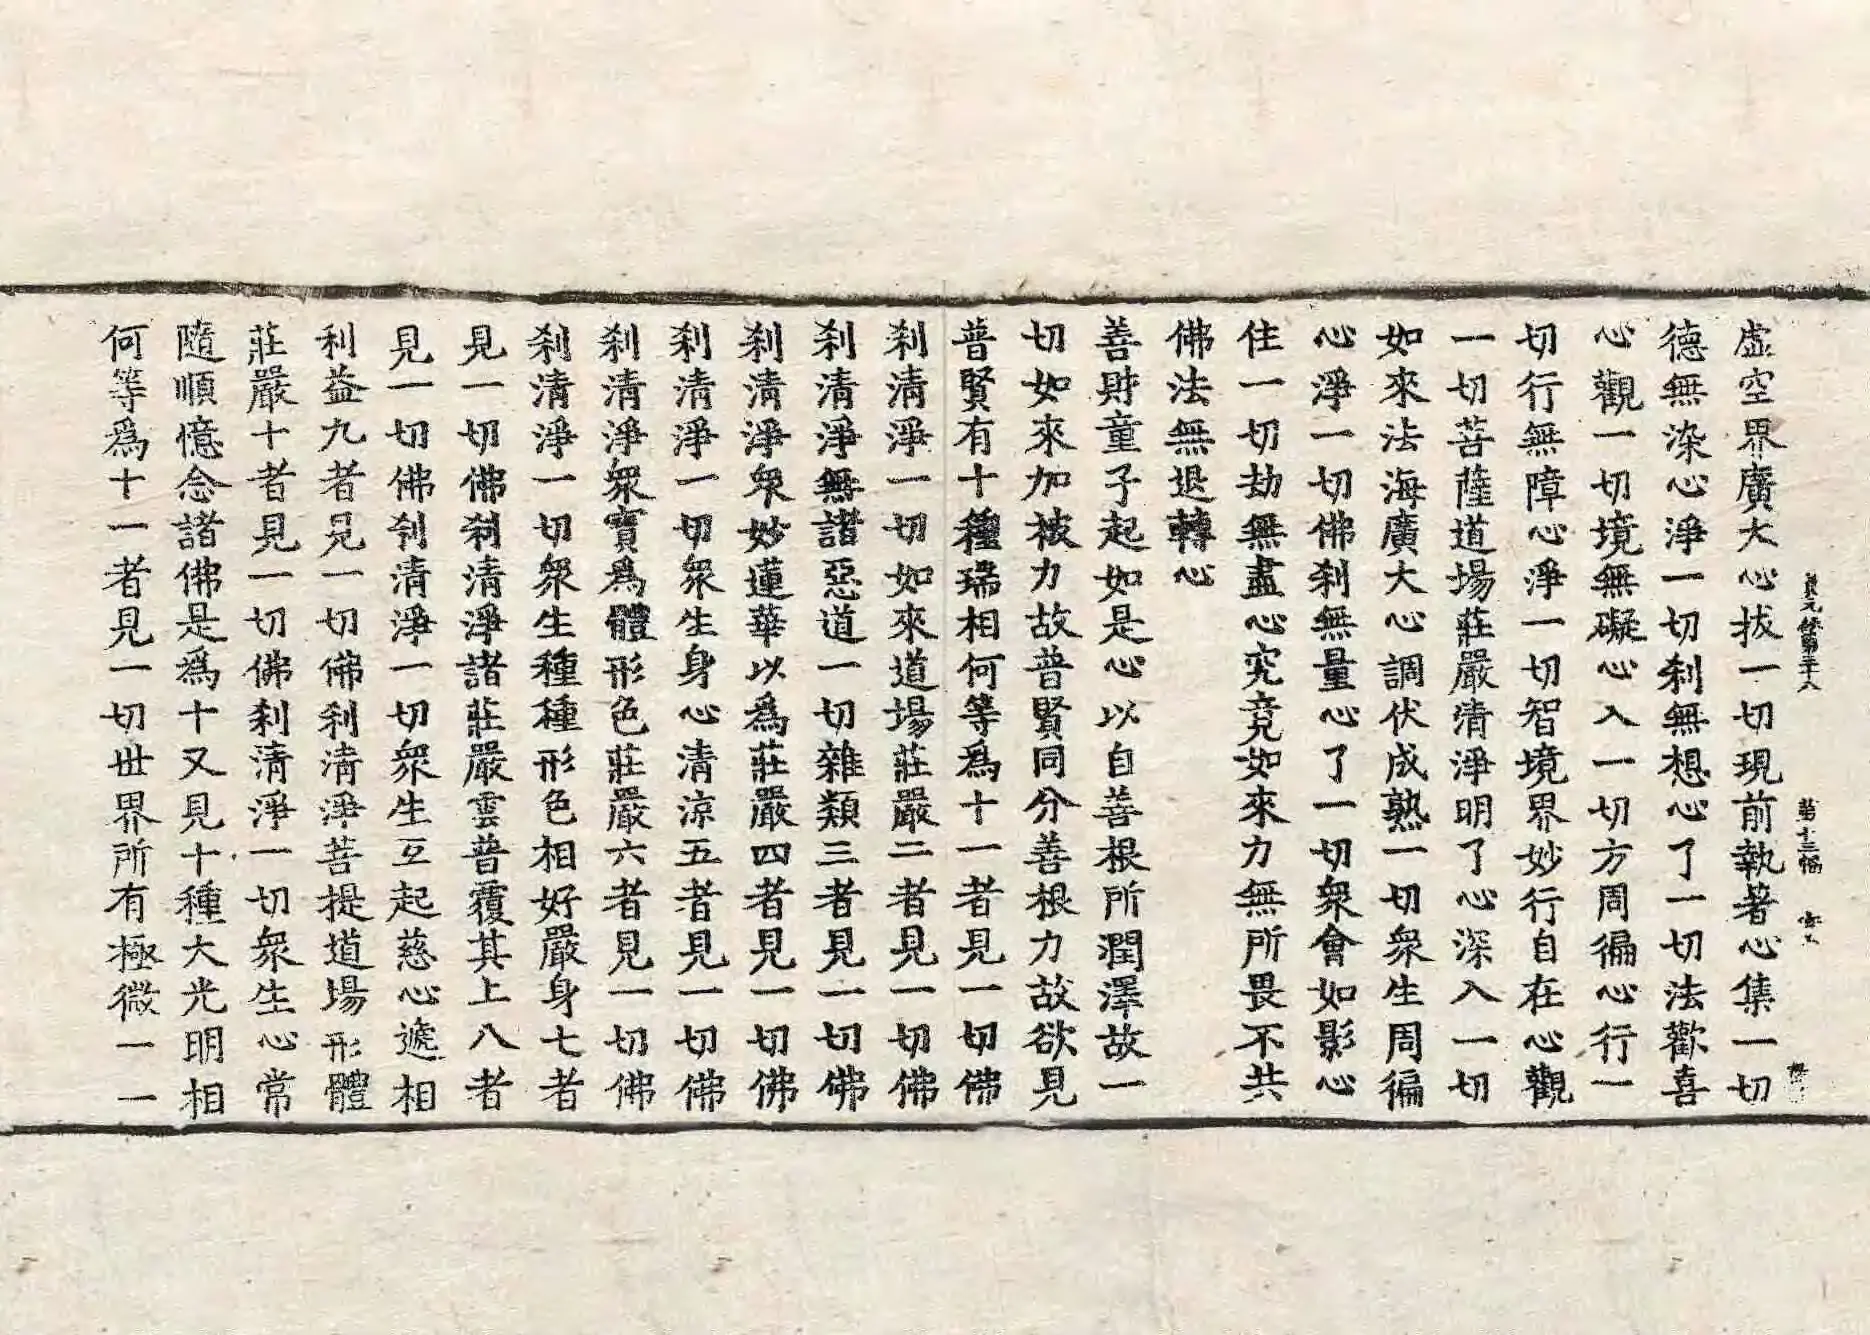 虛空界廣大心拔一切現前執著心集一切
德無染心淨一切刹無想心了一切法歡喜
心觀一切境無礙心入一切方周徧心行一
切行無障心淨一切智境界妙行自在心觀
一切菩薩道場莊嚴清淨明了心深入一切
如來法海廣大心調伏成熟一切衆生周徧
心淨一切佛刹無量心了一切衆會如影心
住一切劫無盡心究竟如來力無所畏不共
佛法無退轉心
善財童子起如是心以自善根所潤澤故一
切如來加被力故普賢同分善根力故欲見
普賢有十種瑞相何等爲十一者見一切佛
刹清淨一切如來道場莊嚴二者見一切佛
刹清淨無諸惡道一切雜類三者見一切佛
刹清淨衆妙蓮華以爲莊嚴四者見一切佛
刹清淨一切衆生身心清涼五者見一切佛
刹清淨衆寳爲體形色莊嚴六者見一切佛
刹清淨一切衆生種種形色相好嚴身七者
見一切佛刹清淨諸莊嚴雲普覆其上八者
見一切佛刹清淨一切衆生互起慈心遞相
利益九者見一切佛利清淨菩提道場形體
莊嚴十者見一切佛刹清淨一切衆生心常
隨順憶念諸佛是爲十又見十種大光明相
何等爲十一者見一切世界所有極微一一